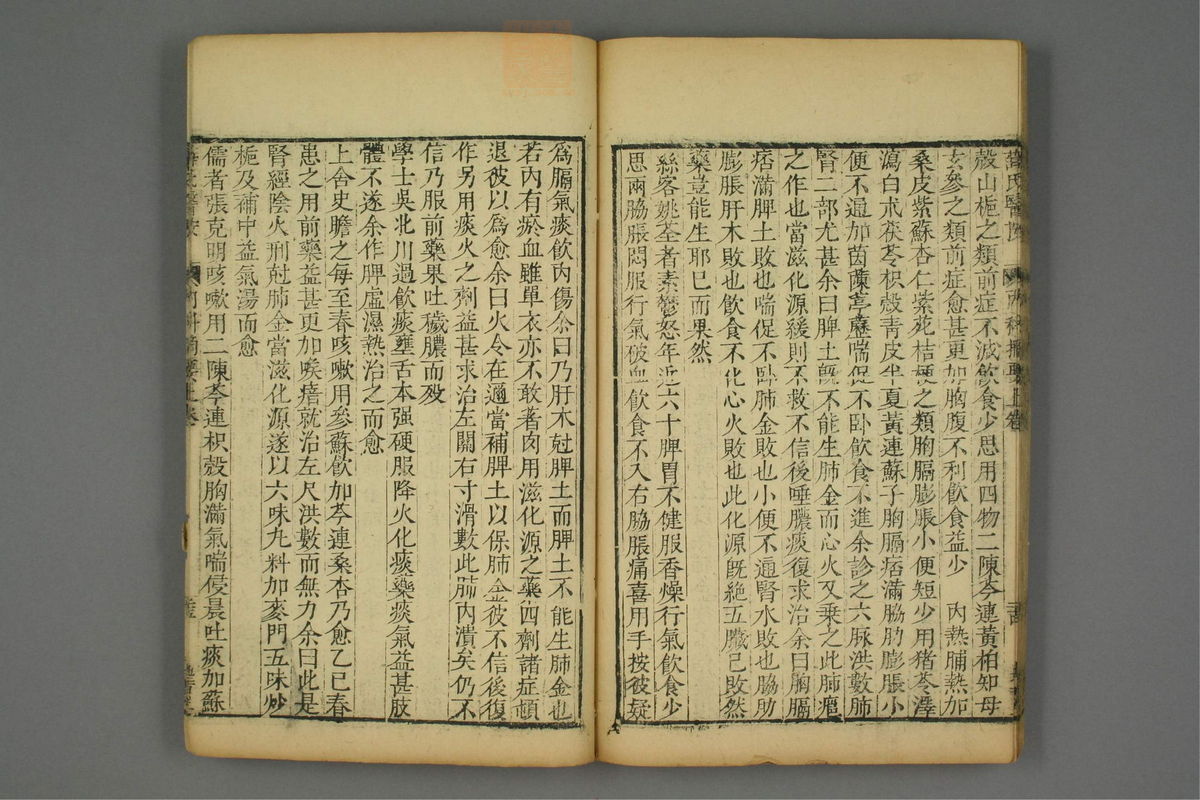 薛氏醫按 內科摘要上卷
殼山梔之類前症不減飲食少思用四物二陳芩連黃柏知母
玄參之類前症愈甚更加胸腹不利飲食益少 內熱晡熱加
桑皮紫蘇杏仁紫菀桔梗之類胸膈膨脹小便短少用猪苓澤
瀉白朮茯苓枳殼青皮半夏黃連蘇子胸膈痞滿脇肋膨脹小
便不通加茵蔯葶藶喘促不卧飲食不進余診之六脉洪數肺
腎二部尤甚余曰脾土旣不能生肺金而心火又乗之此肺癰
之作也當滋化源緩則不救不信後唾膿痰復求治余曰胸膈
痞滿脾土敗也喘促不卧肺金敗也小便不通腎水敗也脇肋
膨脹肝木敗也飲食不化心火敗也此化源旣絶五臟已敗然
藥豈能生耶已而果然
絲客姚荃者素鬱怒年近六十脾胃不健服香燥行氣飲食少
思兩脇脹悶服行氣破血飲食不入右脇脹痛喜用手按彼疑
爲膈氣痰飲內傷余曰乃肝木尅脾土而脾土不能生肺金也
若內有瘀血雖單衣亦不敢著肉用滋化源之藥四劑諸症頓
退彼以爲愈余曰火令在邇當補脾土以保肺金彼不信後復
作另用痰火之劑益甚求治左關右寸滑數此肺內潰矣仍不
信乃服前藥果吐穢膿而歿
學士吳北川過飲痰壅舌本强硬服降火化痰藥痰氣益甚肢
體不遂余作脾虛濕熱治之而愈
上舍史瞻之每至春咳嗽用參蘇飲加芩連桑杏乃愈乙巳春
患之用前藥益甚更加喉瘖就治左尺洪數而無力余曰此是
腎經陰火刑尅肺金當滋化源遂以六味丸料加麥門五味炒
梔及補中益氣湯而愈
儒者張克明咳嗽用二陳芩連枳殼胸滿氣喘侵晨吐痰加蘇